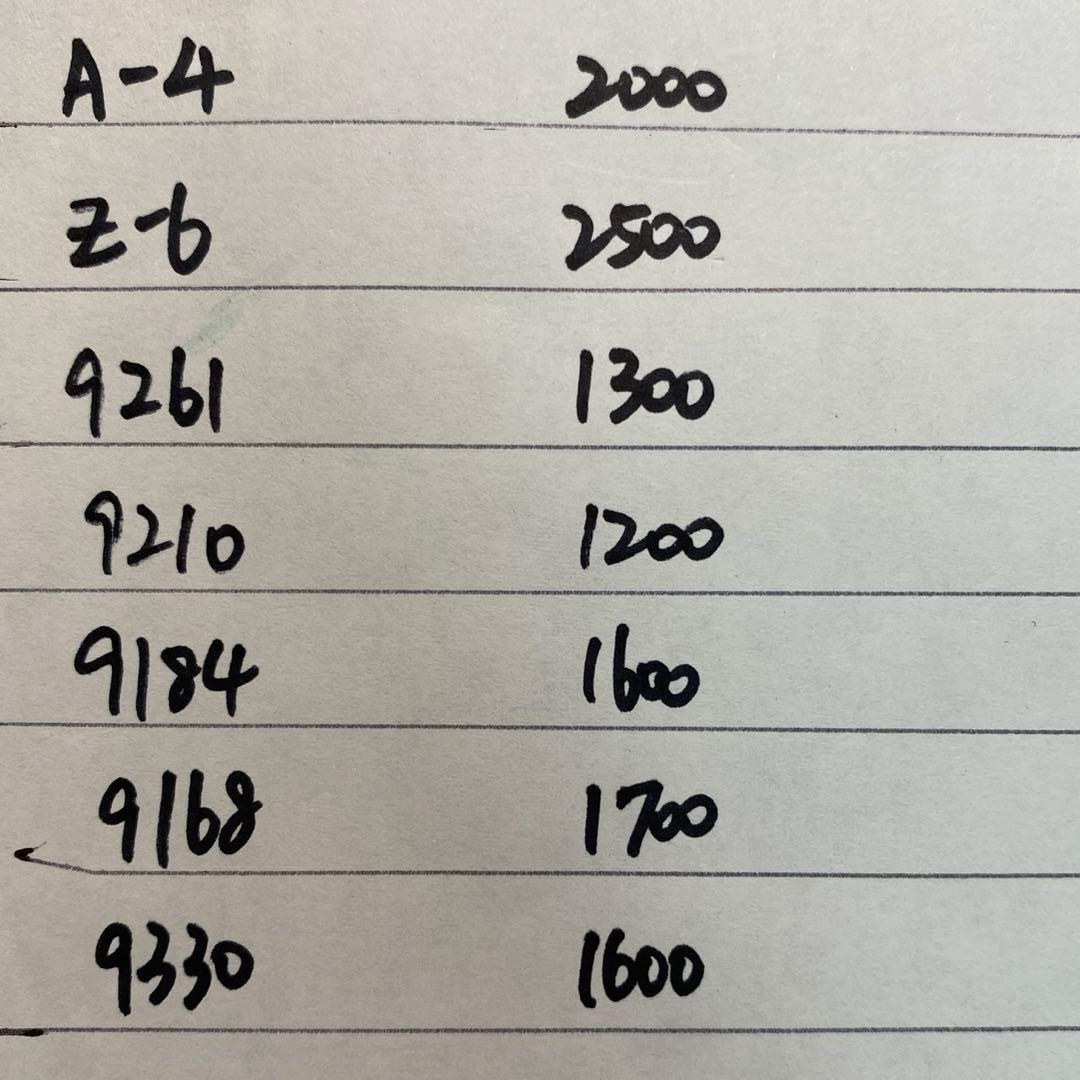 A-4 2000
Z-6 2500
9261 1300
9210 1200
9184 1600
9168 1700
9330 1600